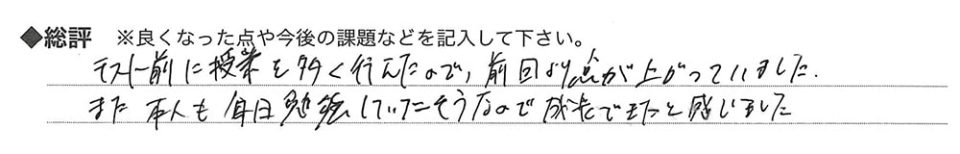 ◆総評 ※良くなった点や今後の課題などを記入して下さい。
テスト前に授業を多く行えたので、前回より点が上がっていました.
また本人も毎日勉強していたそうなので成長できたと感じました